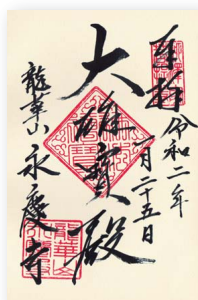 奉拝
令和二年
一月二十五日
大雄寳殿
龍華山
永慶寺